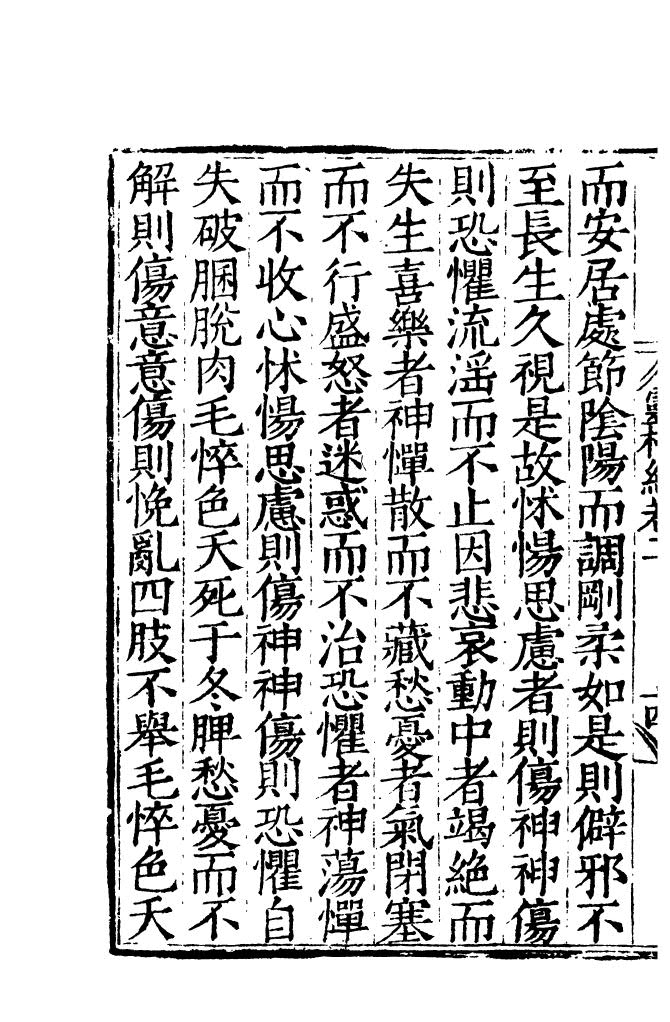 而安居處節陰陽而調剛柔如是則僻邪不
至長生久視是故怵惕思慮者則傷神神傷
則恐懼流淫而不止因悲哀動中者竭絶而
失生喜樂者神憚散而不藏愁憂者氣閉塞
而不行盛怒者迷惑而不治恐懼者神蕩憚
而不收心怵惕思慮則傷神神傷則恐懼自
失破䐃脫肉毛悴色夭死于冬脾愁憂而不
解則傷意意傷則悗亂四肢不舉毛悴色夭